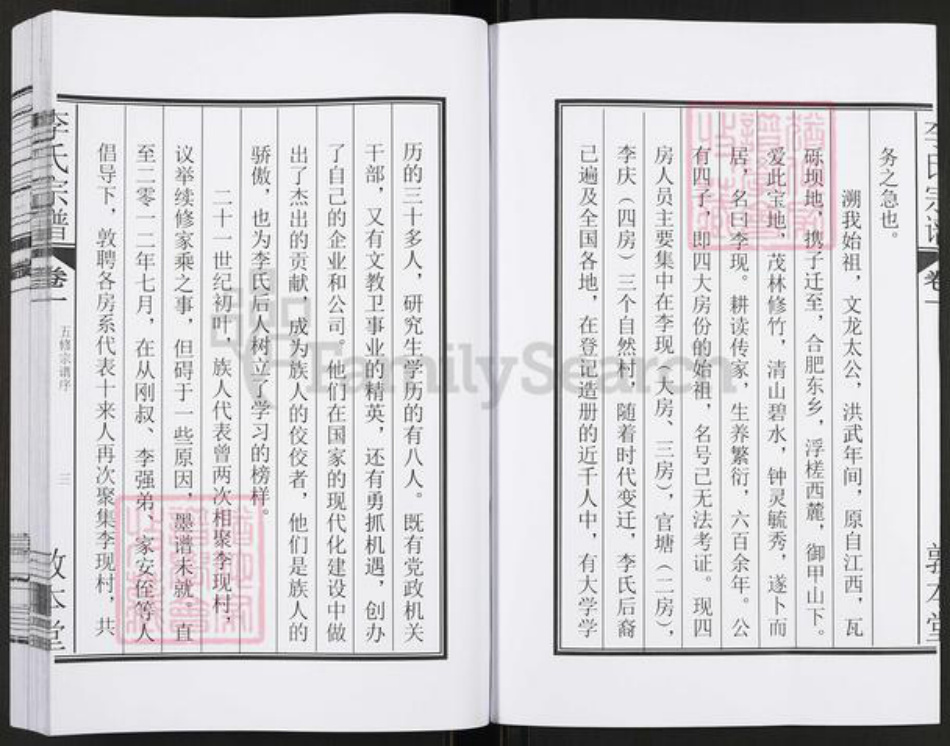 务之急也。
溯我始祖，文龙太公，洪武年间，原自江西，瓦
砾坝地，携子迁至，合肥东乡，浮槎西麓，御甲山下。
爱此宝地，茂林修竹，清山碧水，钟灵毓秀，遂卜而
居，名曰李现。耕读传家，生养繁衍，六百余年。公
有四子，即四大房份的始祖，名号已无法考证。现四
房人员主要集中在李现（大房、三房），官塘（二房），
李庆（四房）三个自然村，随着时代变迁，李氏后裔
已遍及全国各地，在登记造册的近千人中，有大学学
李氏宗谱
卷一
敦本堂
历的三十多人，研究生学历的有八人。既有党政机关
干部，又有文教卫事业的精英，还有勇抓机遇，创办
了自己的企业和公司。他们在国家的现代化建设中做
出了杰出的贡献，成为族人的佼佼者，他们是族人的
骄傲，也为李氏后人树立了学习的榜样。
二十一世纪初叶，族人代表曾两次相聚李现村，
议举续修家乘之事，但碍于一些原因，墨谱未就。直
至二零一二年七月，在从刚叔、李强弟、家安侄等人
倡导下，敦聘各房系代表十来人再次聚集李现村，共
李氏宗谱
卷一
五修宗谱序
三
敦本堂
FamilySearch